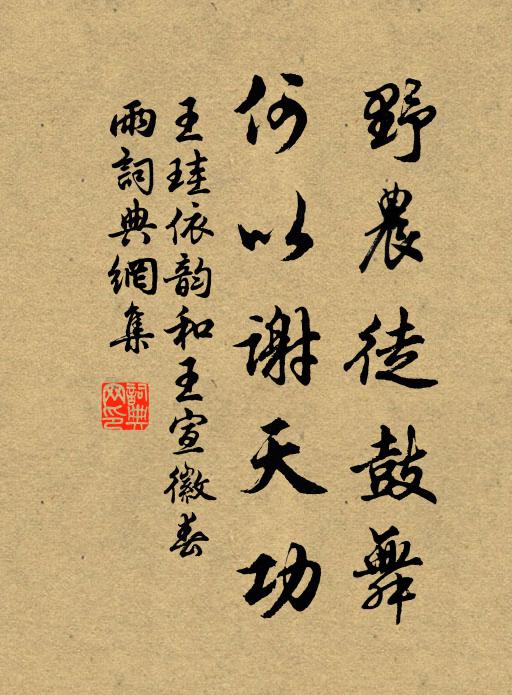 野農徒鼓舞
何以謝天功
王珪依韵和王宣徽春
雨詞典網集
詞典
网印